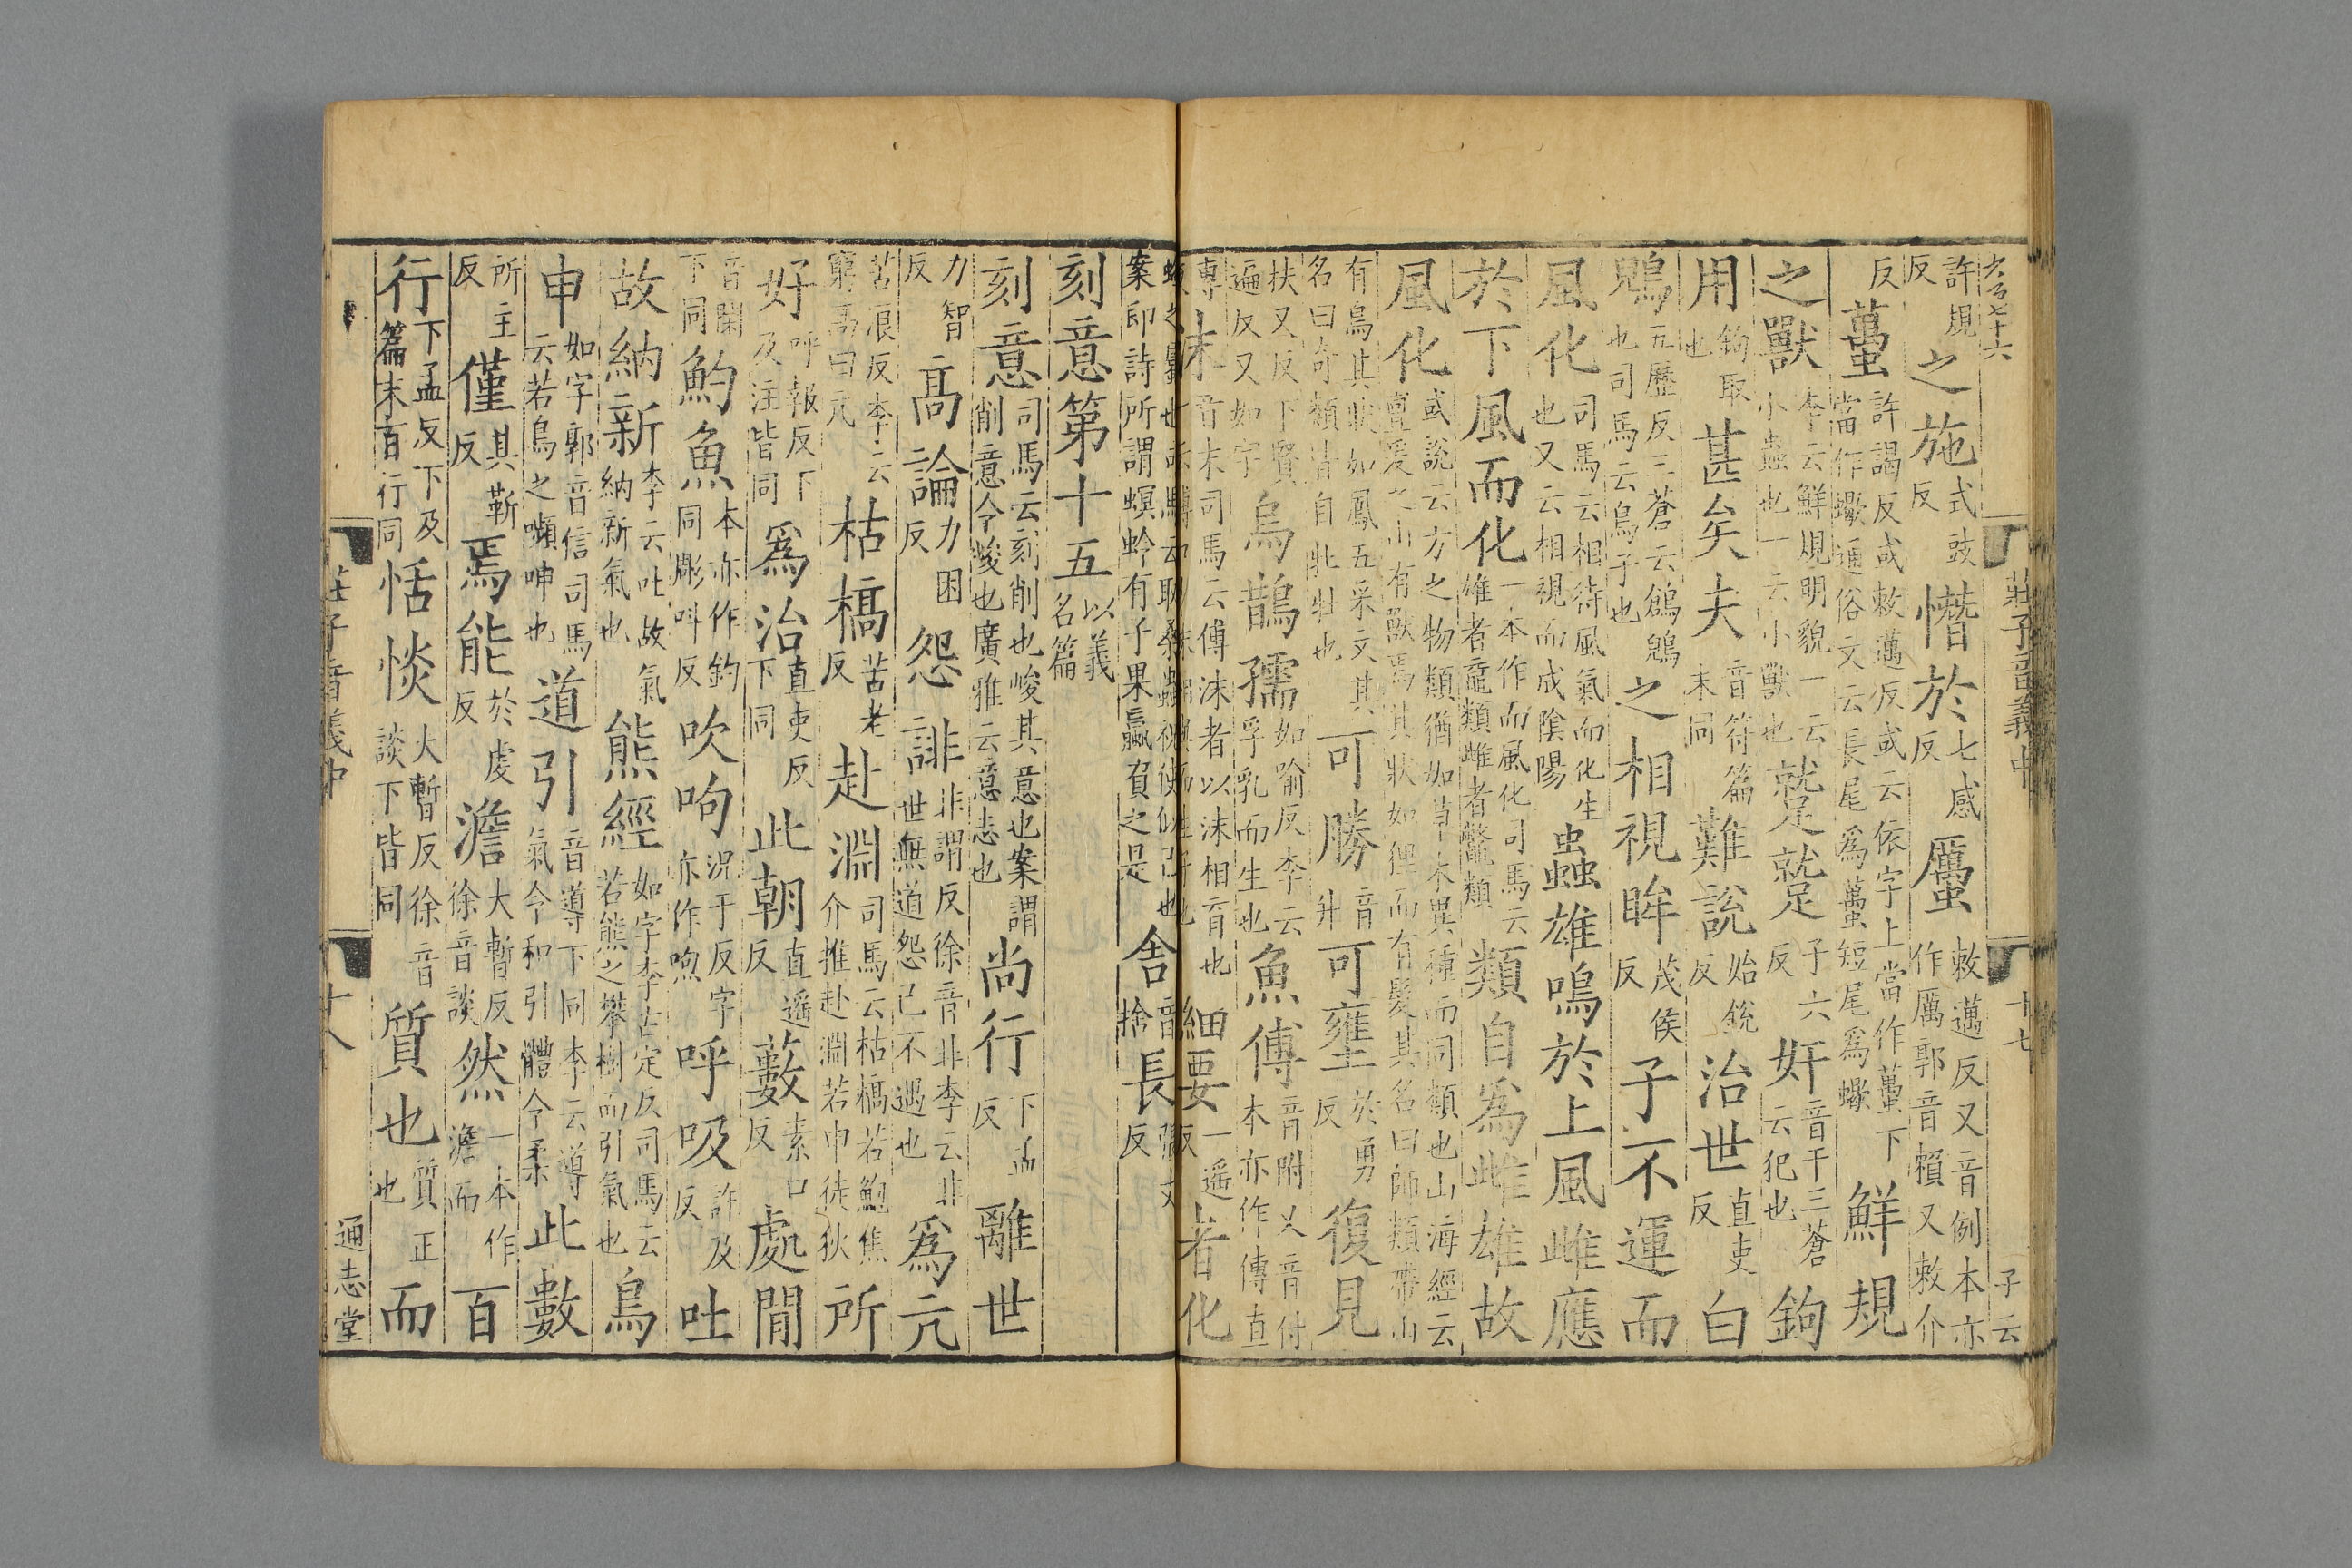 莊子音義中 十七 子云
許規反之施式豉反憯於七感反厲蠆敕邁反又音例本亦作厲郭音賴又敕介
反蠆許謁反或敕邁反或云依字上當作蠆下當作蠍通俗文云長尾爲蠆短尾爲蠍鮮規
之獸李云鮮規明貌一云小蟲也一云小獸也蹵蹵子六反奸音干三蒼云犯也鉤
用鉤取也甚矣夫音符篇末同難說始銳反治世直吏反白
鶂五歷反三蒼云鶬鶂也司馬云鳥子也之相視眸茂侯反子不運而
風化司馬云相待風氣而化生也又云相視而成陰陽蟲雄鳴於上風雌應
於下風而化一本作而風化司馬云雄者黿類雌者鼈類類自爲雌雄故
風化或說云方之物類猶如草木異種而同類也山海經云亶爰之山有獸焉其狀如貍而有髮其名曰師類帶山
有鳥其狀如鳳五采文其名曰奇類皆自牝牡也可勝音升可壅於勇反復見
扶又反下賢遍反又如字烏鵲孺如喻反李云孚乳而生也魚傅音附又音付本亦作傳直
專沫音末司馬云傅沫者以沫相育也細要一遥反者化
案即詩所謂螟蛉有子果蠃負之是舍音捨長張丈反
刻意第十五以義名篇
刻意司馬云刻削也峻其意也案謂削意令峻也廣雅云意志也尚行下孟反離世
力智反高論力困反怨誹非謂反徐音非李云非世無道怨己不遇也爲亢
苦浪反李云窮高曰亢枯槁苦老反赴淵司馬云枯槁若鮑焦介推赴淵若申徒狄所
好呼報反下及注皆同爲治直吏反下同此朝直遥反藪素口反處閒
音閑下同釣魚本亦作鈞同彫叫反吹呴況于反字亦作喣呼吸許及反吐
故納新李云吐故氣納新氣也熊經如字李古定反司馬云若熊之攀樹而引氣也鳥
申如字郭音信司馬云若鳥之嚬呻也道引音導下同李云導氣令和引體令柔此數
所主反僅其靳反焉能於虔反澹大暫反徐音談然一本作澹而百
行下孟反下及篇末百行同恬惔大暫反徐音談下皆同質也質正也而
莊子音義中 十八 通志堂